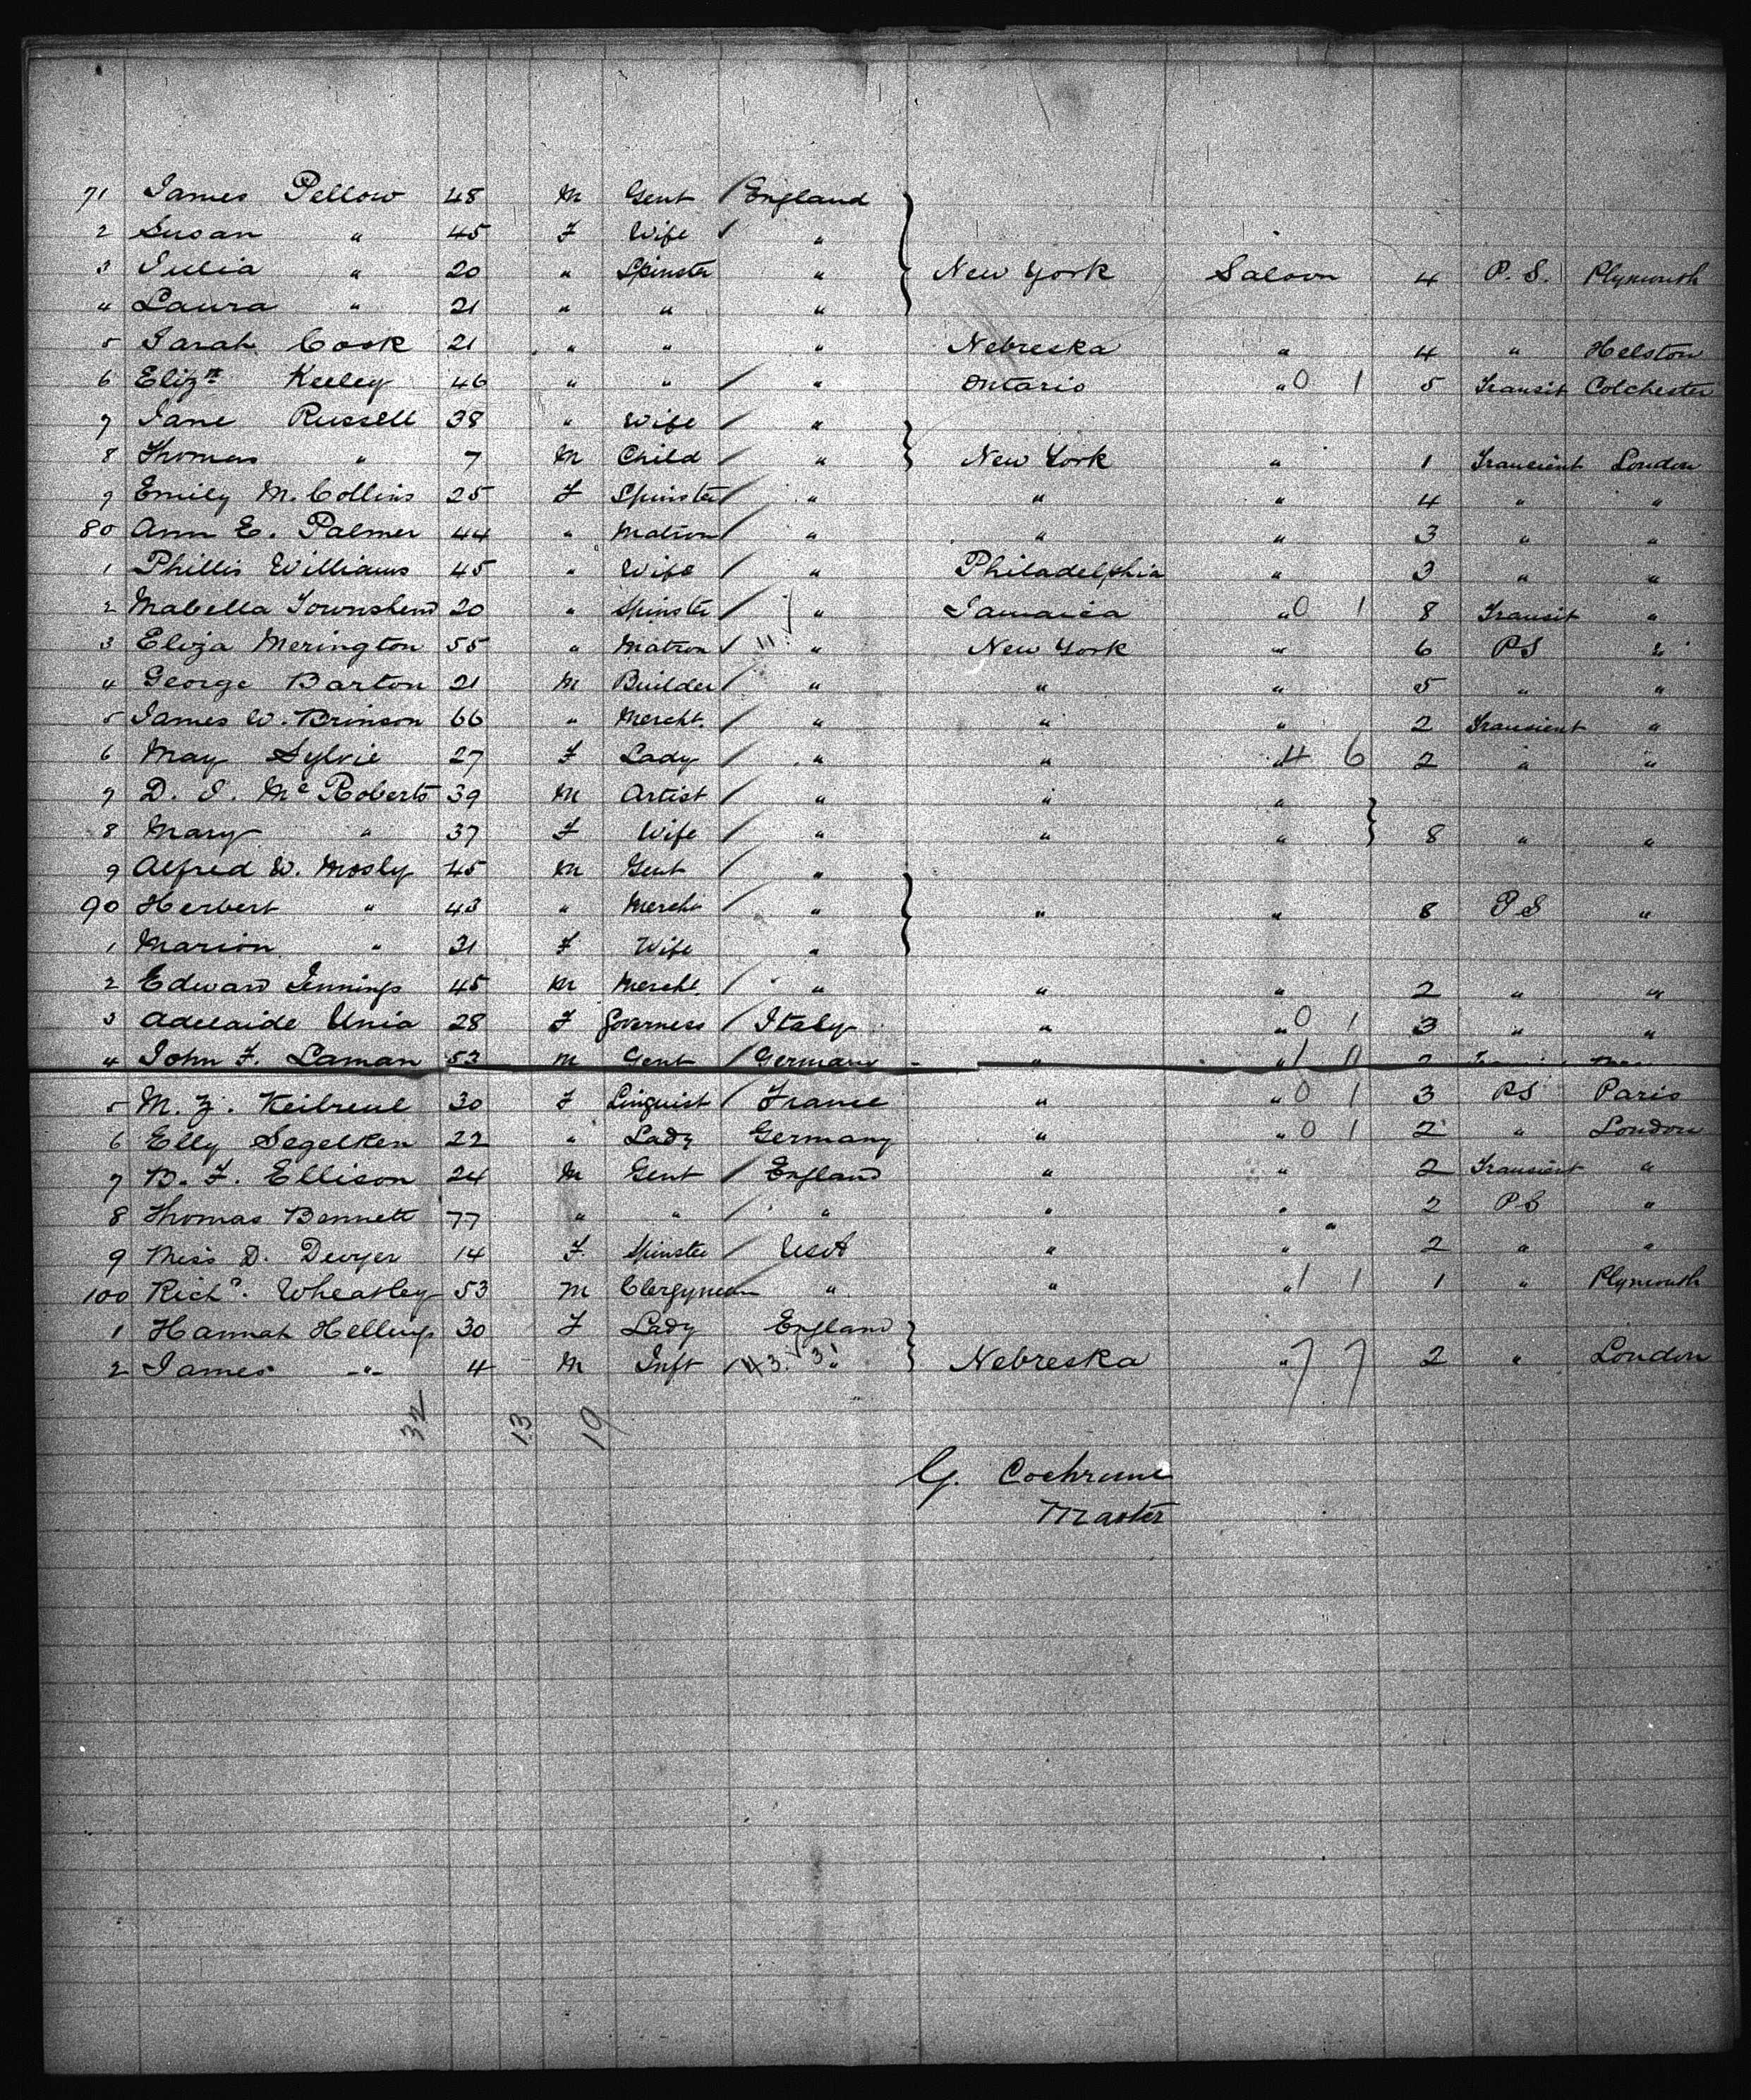 71 James Pellow 48 M Gent / England
2 Susan " 45 F Wife / "
3 Julia " 20 " Spinster " New York Saloon 4 P.S. Plymouth
4 Laura " 21 " " "
5 Sarah Cook 21 " " " Nebreska " 4 " Helston
6 Elizth Keeley 46 " " / " Ontario " 0 1 5 Transit Colchester
7 Jane Russell 38 " Wife / "
8 Thomas " 7 M Child / " New York " 1 Transient London
9 Emily M. Collins 25 F Spinster / " " " 4 " "
80 Ann E. Palmer 44 " Matron / " " " 3 " "
1 Phillis Williams 45 " Wife / " Philadelphia " 3 " "
2 Mabella Townshend 20 " Spinster / " Jamaica " 0 1 8 Transit "
3 Eliza Merington 55 " Matron / 11 " New York " 6 PS "
4 George Barton 21 M Builder / " " " 5 " "
5 James W. Brinson 66 " Mercht. / " " " 2 Transient "
6 May Sylvie 27 F Lady / " " " 4 6 2 " "
7 D. J. Mc Roberts 39 M Artist / " " "
8 Mary " 37 F Wife / " " " 8 " "
9 Alfred W. Mosly 45 M Gent / "
90 Herbert " 43 " Mercht / " " " 8 PS "
1 Marion " 31 F Wife "
2 Edward Jennings 45 M Mercht. / " " " 2 " "
3 Adelaide Unia 28 F Governess / Italy " " 0 1 3 " "
4 John F. Laman 53 M Gent / Germany " " 1 0
5 M. Z. 30 F Linguist / France " " 0 1 3 PS Paris
6 Elly Segelken 22 " Lady Germany " " 0 1 2 " London
7 B. F. Ellison 24 M Gent / England " " 2 Transient "
8 Thomas Bennett 77 " " / " " " 2 PS "
9 Miss D. Dwyer 14 F. Spinster / USA " " 2 " "
100 Richd. Wheatley 53 M Clergyman " " " 1 1 1 " Plymouth
1 Hannah Hellings 30 F Lady England
2 James " 4 M Inft / 43. 31 " Nebreska " 7 7 2 " London
32 13 19
G. Cochrane
Master